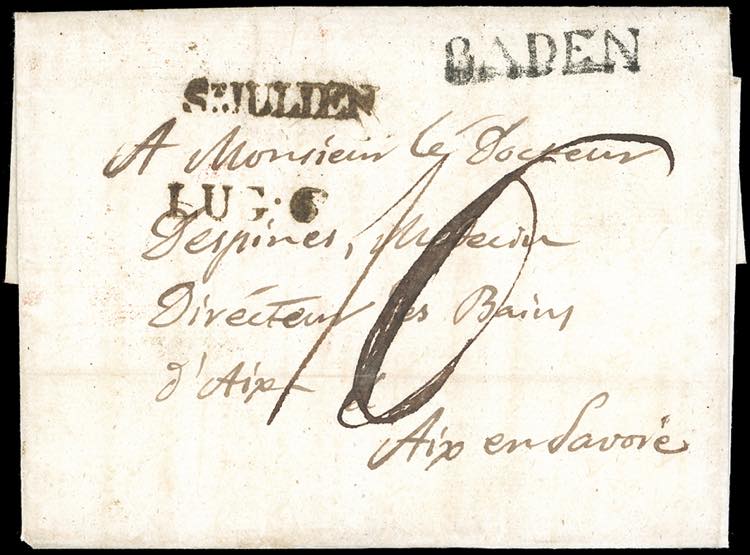 BADEN
St. JULIEN
A Monsieur le Docteur
LUG. 6
Despines, Medecin
Directeur des Bains
d'Aix à
Aix en Savoie
16